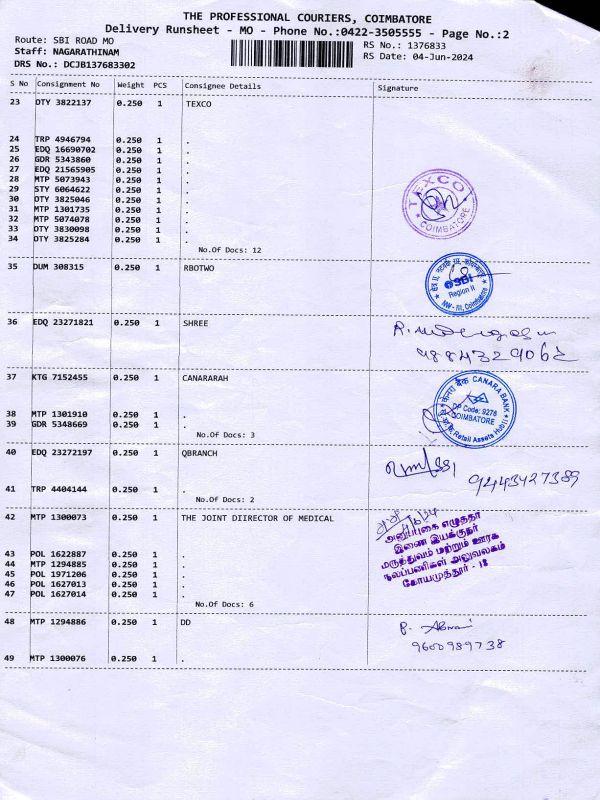 THE PROFESSIONAL COURIERS, COIMBATORE
Delivery Runsheet - MO - Phone No.:0422-3505555 - Page No.:2
Route: SBI ROAD MO
Staff: NAGARATHINAM
DRS No.: DCJB137683302
RS No.: 1376833
RS Date: 04-Jun-2024
S No Consignment No Weight PCS Consignee Details Signature
23 OTY 3822137 0.250 1 TEXCO
24 TRP 4946794 0.250 1 .
25 EDQ 16690702 0.250 1 .
26 GDR 5343860 0.250 1 .
27 EDQ 21565905 0.250 1 .
28 MTP 5073943 0.250 1 .
29 STY 6064622 0.250 1 .
30 OTY 3825046 0.250 1 .
31 MTP 1301735 0.250 1 .
32 MTP 5074078 0.250 1 .
33 OTY 3830098 0.250 1 .
34 OTY 3825284 0.250 1 .
No.Of Docs: 12
TEXCO
COIMBATORE
35 DUM 308315 0.250 1 RBOTWO
SBI
Region II
NW-III, Coimbatore
36 EDQ 23271821 0.250 1 SHREE
9884329062
37 KTG 7152455 0.250 1 CANARARAH
38 MTP 1301910 0.250 1 .
39 GDR 5348669 0.250 1 .
No.Of Docs: 3
केनरा बैंक CANARA BANK
DP Code: 9276
COIMBATORE
Retail Assets Hub
40 EDQ 23272197 0.250 1 QBRANCH
9443427389
41 TRP 4404144 0.250 1 .
No.Of Docs: 2
42 MTP 1300073 0.250 1 THE JOINT DIIRECTOR OF MEDICAL
43 POL 1622887 0.250 1 .
44 MTP 1294885 0.250 1 .
45 POL 1971206 0.250 1 .
46 POL 1627013 0.250 1 .
47 POL 1627014 0.250 1 .
No.Of Docs: 6
அனுப்புகை எழுத்தர்
இணை இயக்குநர்
மருத்துவம் மற்றும் ஊரக
நலப்பணிகள் அலுவலகம்
கோயமுத்தூர் - 18
48 MTP 1294886 0.250 1 DD
9600989738
49 MTP 1300076 0.250 1 .